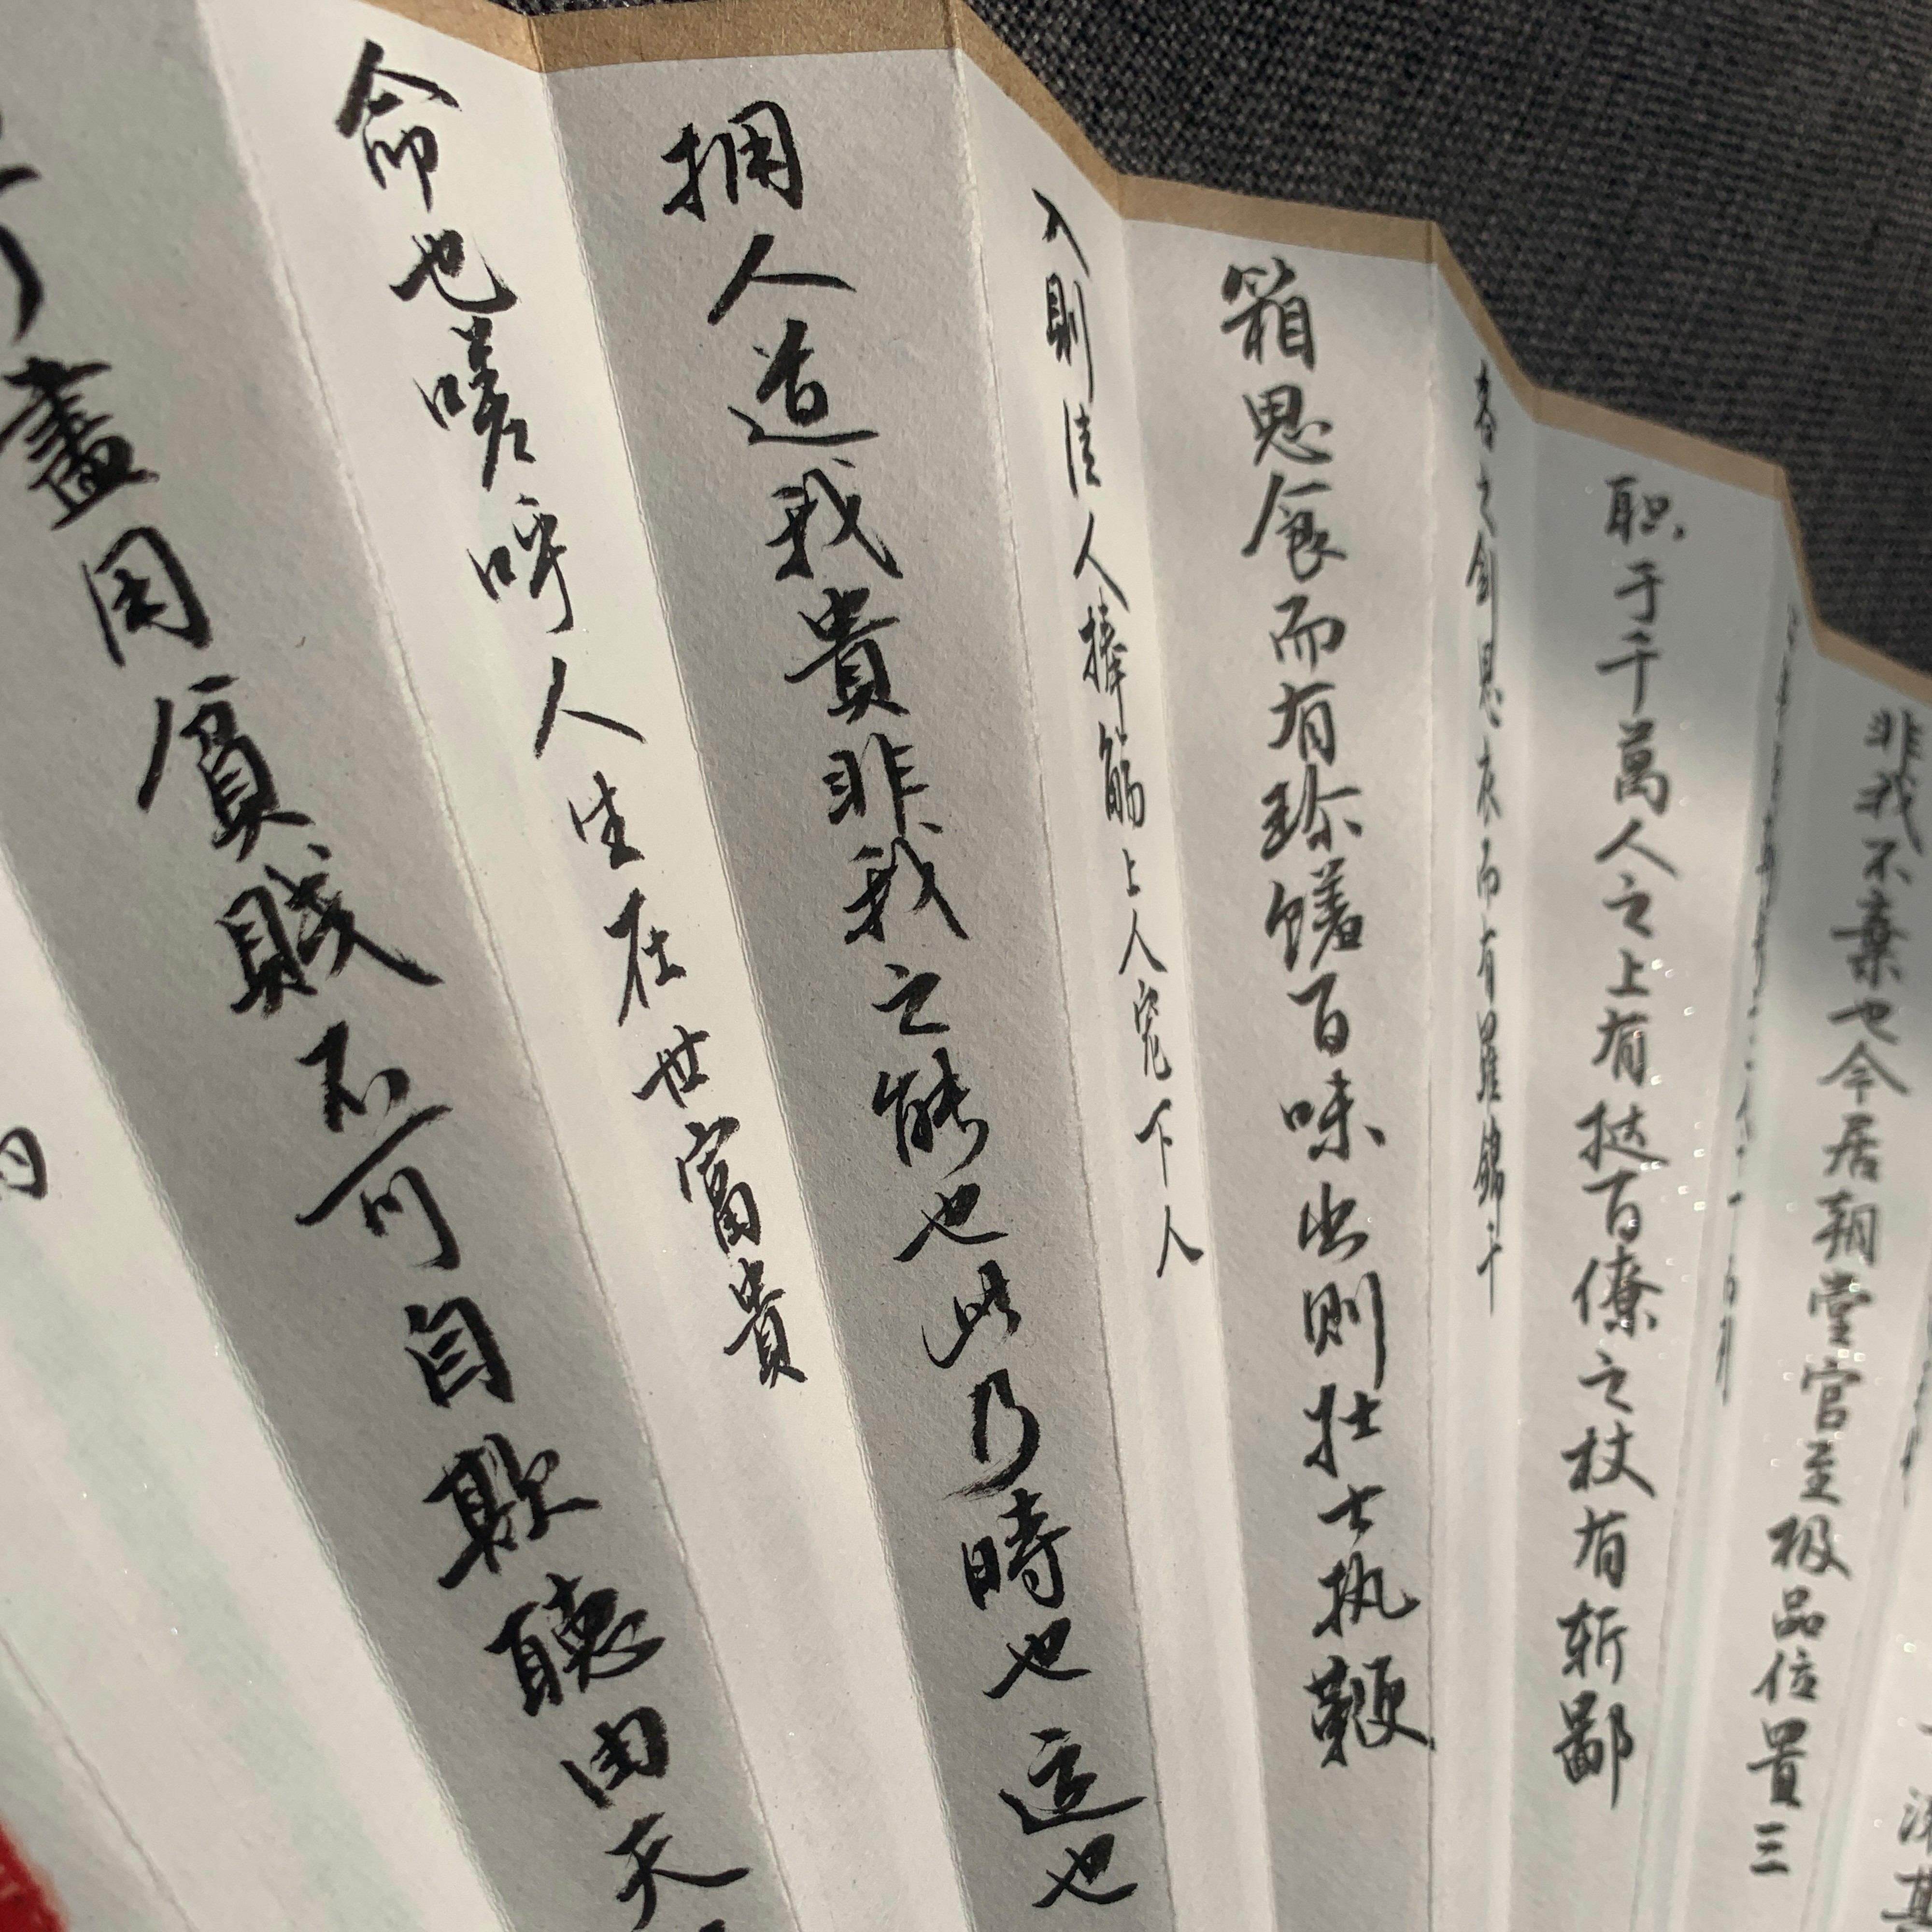 非我不棄也今居朝堂官至极品位置三
职于千萬人之上有挞百僚之杖有斩鄙
吝之剑思衣而有羅錦千
箱思食而有珎饈百味出则壮士执鞭
入則佳人捧觞上人寵下人
拥人道我貴非我之能也此乃時也運也
命也嗟呼人生在世富貴
盡用貧賤不可自欺聽由天